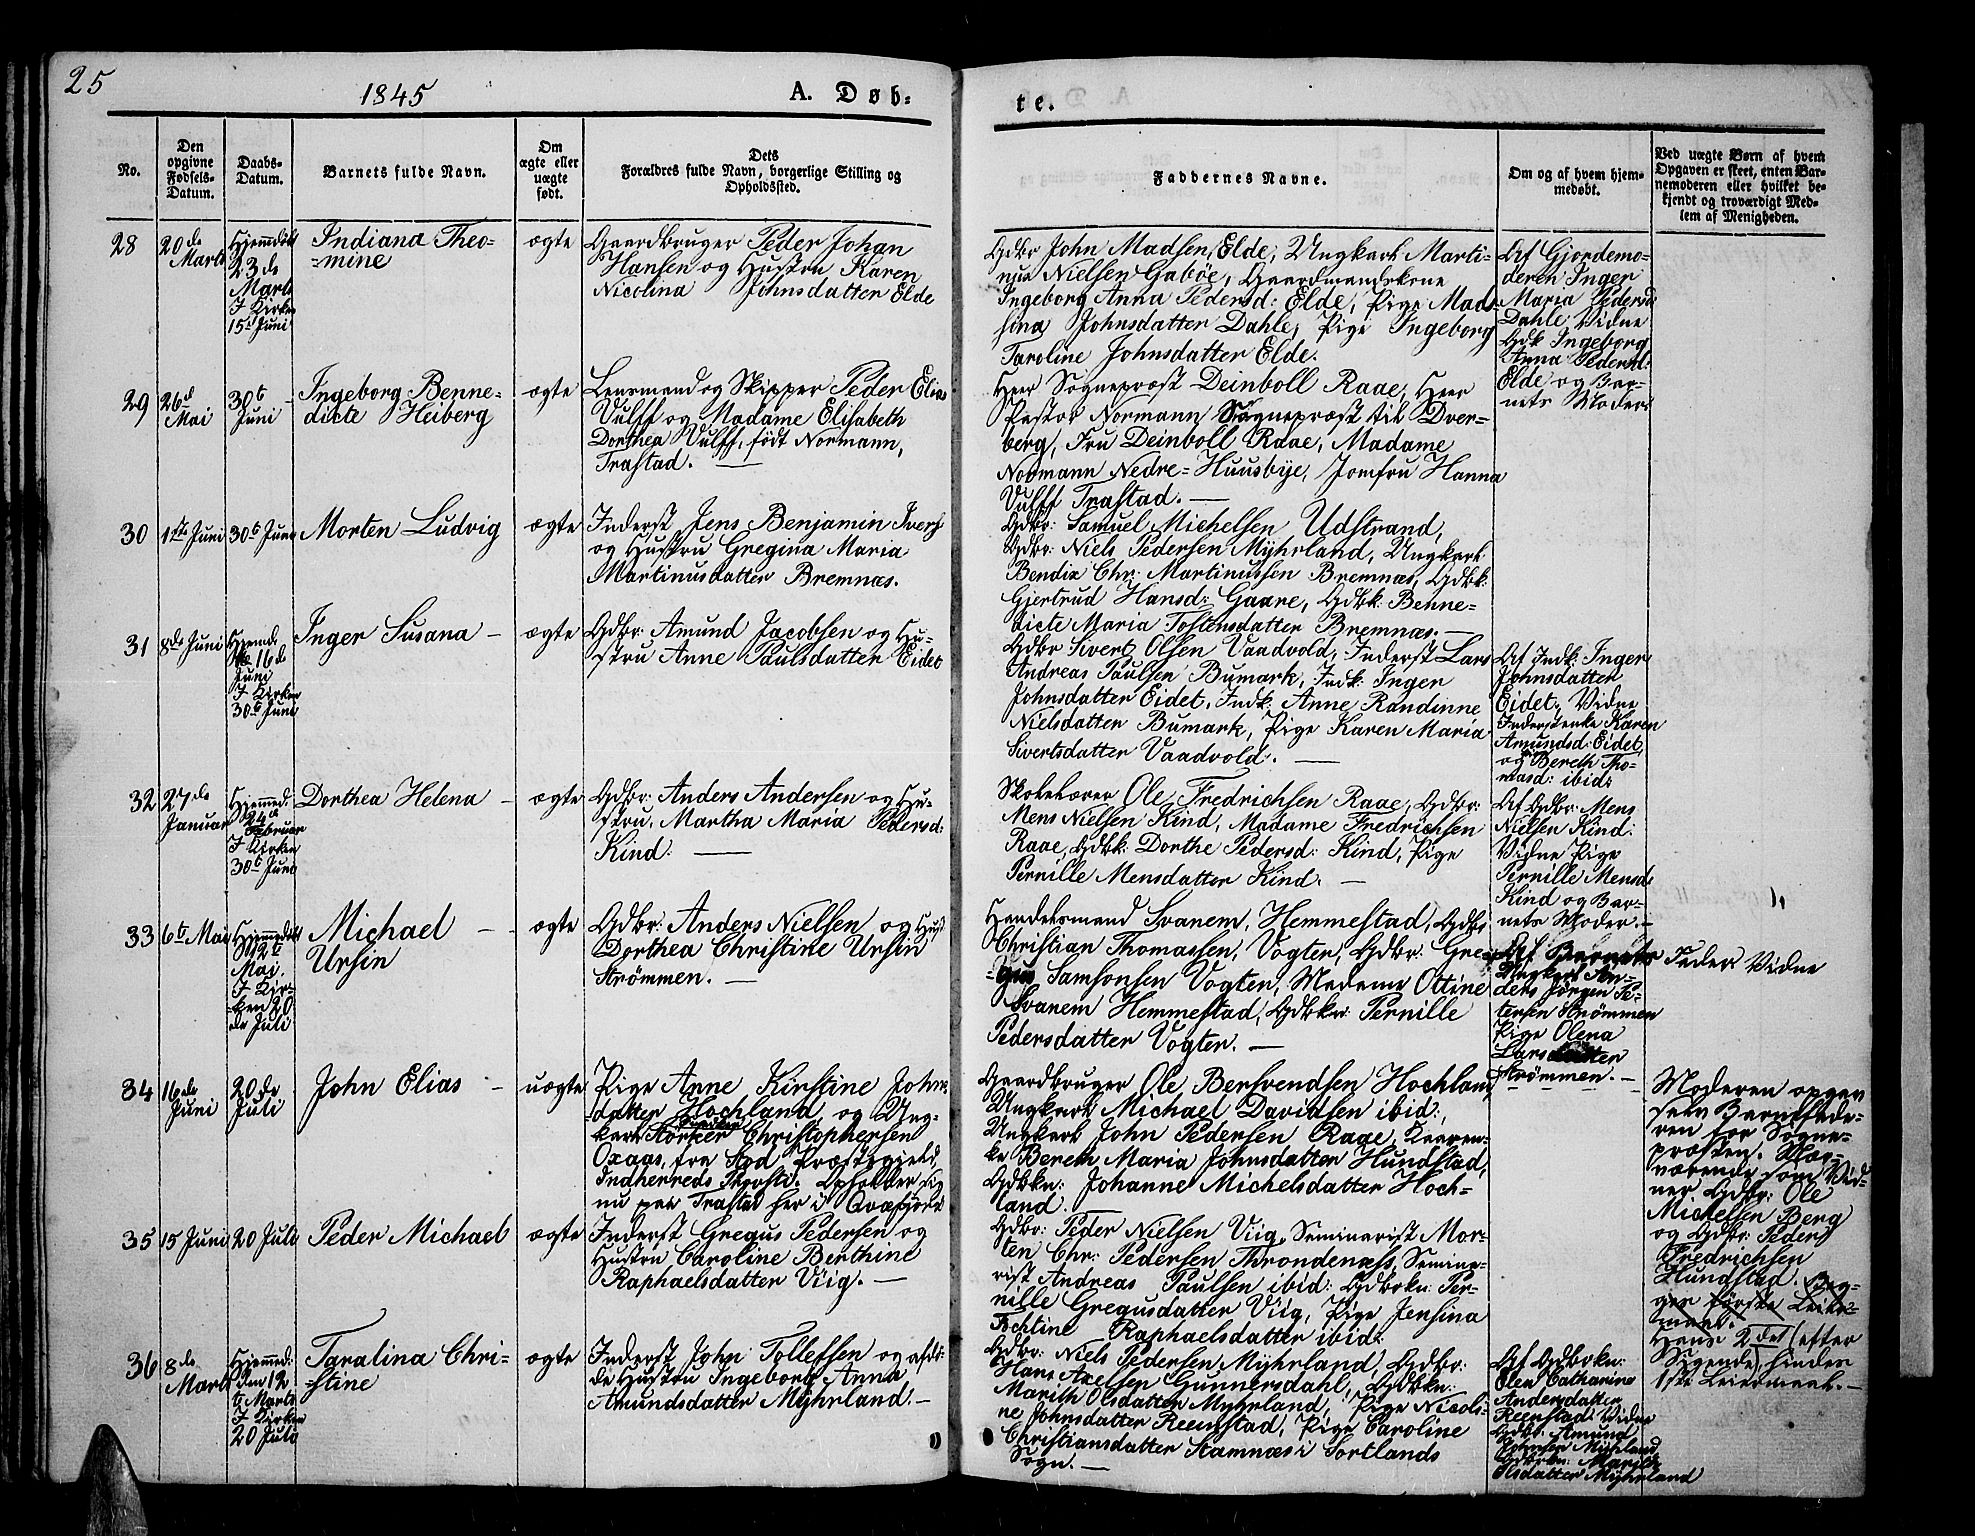 25
1845
A. Døb-
te.
No.
Den opgivne Fødsels-Datum.
Daabs-Datum.
Barnets fulde Navn.
Om ægte eller uægte født.
Dets
Forældres fulde Navn, borgerlige Stilling og
Opholdssted.
Faddernes Navne.
Om og af hvem hjem-
medøbt.
Ved uægte Børn af hvem
Opgaven er skeet, enten Bar-
nemoderen eller hvilket be-
kjendt og troværdigt Med-
lem af Menigheden.
28
20de
Marts
Hjemdøbt
23de
Marts
I Kirken
15d Juni
Indiana Theo-
=mine
ægte
Gaardbruger Peder Johan
Hansen og Hustru Karen
Nicolina Johnsdatter Elde
Gdbr John Madsen Elde, Ungkarl Marti-
nus Nielsen Gaböe, Gaardmandskone
Ingeborg Anna Pedersd: Elde, Pige Mad-
sina Johnsdatter Dahle, Pige Ingeborg
Taroline Johnsdatter Elde.
Af Gjordemo-
deren Inger
Maria Pedersd:
Dahle, Vidne
Gdk Ingeborg
Anna Pedersd:
Elde og Bar-
nets Moder.
29
26d
Mai
30t
Juni
Ingeborg Benne-
dicte Heiberg
ægte
Lensmand og Skipper Peder Elias
Vulff og Madame Elisabeth
Dorthea Vulff, født Normann,
Trastad. —
Herr Sognepræst Deinboll Raae, Herr
Pastor Normann Sognepræst til Dver-
berg, Fru Deinboll Raae, Madame
Normann Nedre=Huusbye, Jomfru Hanna
Vulff Trastad. —
30
1ste Juni
30t Juni
Morten Ludvig
ægte
Inderst Jens Benjamin Ivers
og Hustru Gregina Maria
Martinusdatter Bremnæs.
Gdbr: Samuel Michelsen Udstrand,
Gdbr: Niels Pedersen Myhrland, Ungkarl
Bendix Chr: Martinussen Bremnæs, Gdbk:
Gjertrud Hansd: Gaare, Gdbk: Benne-
dicte Maria Tostensdatter Bremnæs. —
31
8de Juni
16d
Juni
I Kirken
30t Juni
Inger Susana —
ægte
Gdbr: Amund Jacobsen og Hu-
stru Anne Paulsdatter Eidet
Gdbr Sivert Olsen Vaadvold, Inderst Lars
Andreas Paulsen Bumark, Indk: Inger
Johnsdatter Eidet, Indk: Anne Randinne
Nielsdatter Bumark, Pige Karen Maria
Sivertsdatter Vaadvold. —
Af Indk: Inger
Johnsdatter
Eidet, Vidne
Inderstenke Karen
Amundsd: Eidet,
og Bereth Tho-
masd: ibid:
32
27de
Januar
Hjemmed:
24d
Februar
I Kirken
30t Juni
Dorthea Helena —
ægte
Gdbr: Anders Andersen og Hu-
stru, Martha Maria Pedersd:
Kind. —
Skolelærer Ole Fredrichsen Raae, Gdbr:
Mens Nielsen Kind, Madame Fredrichsen
Raae, Gdbk: Dorthe Pedersd: Kind, Pige
Pernille Mensdatter Kind. —
Af Gdbr: Mens
Nielsen Kind.
Vidne Pige
Pernille Mensd:
Kind og Bar-
nets Moder. —
33
6te Mai
Hjemmedøbt
12te
Mai.
I Kir-
ken 20
de Juli
Michael —
Ursin
ægte
Gdbr: Anders Nielsen og Hust
Dorthea Christine Ursin
Strömmen. —
Handelsmand Svanem, Hemmestad, Gdbr
Christian Thomassen, Vogten, Gdbr: Gre-
=gus Samsonsen Vogten, Madame Ottine
Svanem Hemmestad, Gdbkr: Pernille
Pedersdatter Vogten. —
Af Barnets Fader Vidne
Ungkarl An-
ders Jörgen Pe-
tersen Strömmen
Pige Olena
Larsdatter
Strömmen. —
34
16de
Juni
20de
Juli
John Elias —
uægte
Pige Anne Kirstine Johns-
datter Hochland og Ung-
karl Christophersen
Oxaas, fra Stod Præstegjeld,
Indherreds Provsti. Opholder sig
nu paa Trastad her i Qvæfjord
Gaardbruger Ole Bersvendsen Hochland,
Ungkark Michael Davidsen ibid:,
Ungkark John Pedersen Raae,
Bereth Maria Johnsdatter Hundstad,
Gdbkn: Johanne Michelsdatter Hoch-
land.
Moderen opgav
selv Barnefade-
ren for Sogne-
præsten. Nær-
værende som Vid-
ner Gdbr: Ole
Michelsen Berg
og Gdbr: Peder
Fredrichsen
Hundstad. Beg-
ges første Leier-
maal.
Hans 2det (efter
Sigende) hindes
1ste Leiermaal. —
35
15 Juni
20 Juli
Peder Michael
ægte
Inderst Gregus Pedersen og
Hustru Caroline Berthine
Raphaelsdatter Viig. —
Gdbr: Peder Nielsen Viig, Seminarist Mor-
ten Chr: Pedersen Throndenæs, Semina-
rist Andreas Paulsen ibid: Gdbkn: Per-
nille Gregusdatter Viig, Pige Jensina
Raphaelsdatter ibid:
36
8de
Marts
Hjemmed:
den 12
te Marts
I Kirken
20 Juli
Taralina Chri-
=stine
ægte
Inderst John Tollefsen og afdö-
de Hustru Ingeborg Anna
Amundsdatter Myhrland. —
Gdbr: Niels Pedersen Myhrland, Gdbr:
Hans Axelsen Gunnersdahl, Gdbkn:
Marith Olsdatter Myhrland, Pige Nicoli-
ne Johnsdatter Reenstad, Pige Caroline
Christiansdatter Stamnæs i Sortlands
Sogn. —
Af Gdbrkn:
Olea Catharina
Andersdatter
Reenstad: Vidne
Gdbr: Amund
Johnsen Myhrland,
Gdbkn: Marith
Olsdatter Myhrland